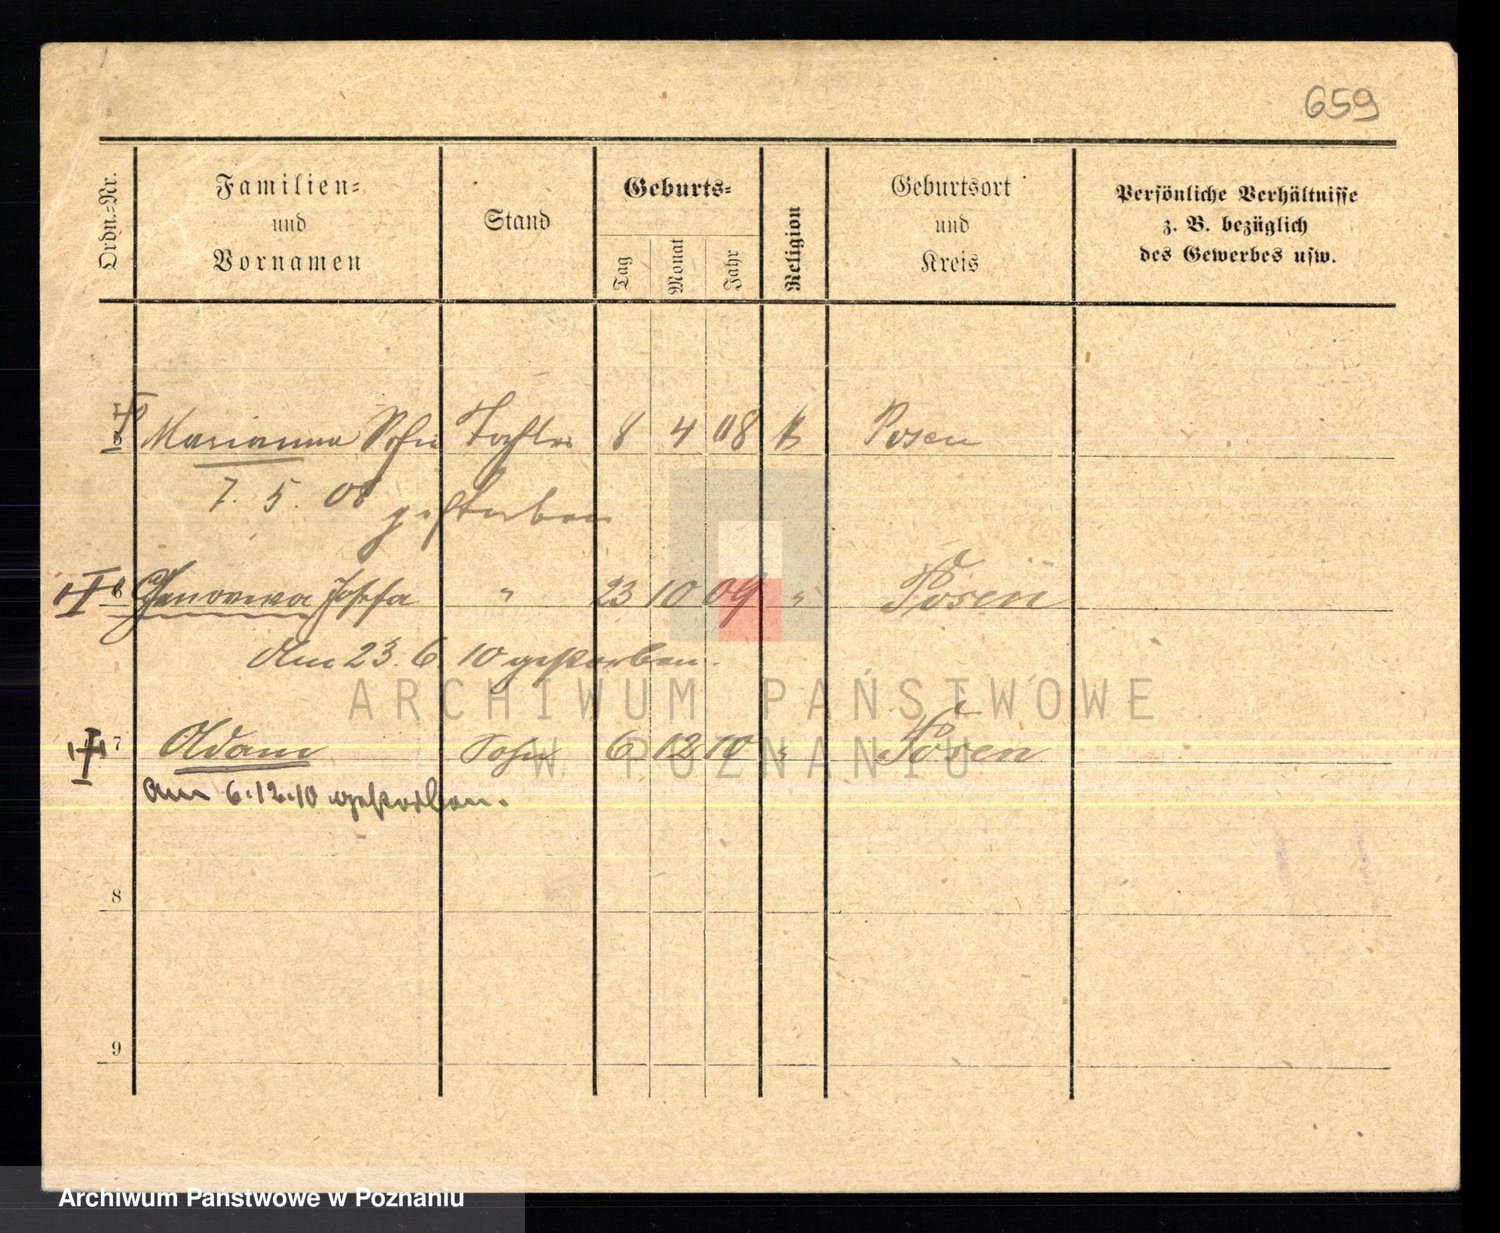 659
Ordn.-Nr.
Familien-
und
Vornamen
Stand
Geburts-
Tag
Monat
Jahr
Religion
Geburtsort
und
Kreis
Persönliche Verhältnisse
z. B. bezüglich
des Gewerbes usw.
Marianna Sofie Tochter 8 4 08 k Posen
7. 5. 08 gestorben
6 Genoveva Josefa " 23 10 09 " Posen
Am 23. 6. 10 gestorben.
ARCHIWUM PAŃSTWOWE
7 Adam Sohn 6 12 10 " Posen
W POZNANIU
am 6.12.10 gestorben.
8
9
Archiwum Państwowe w Poznaniu